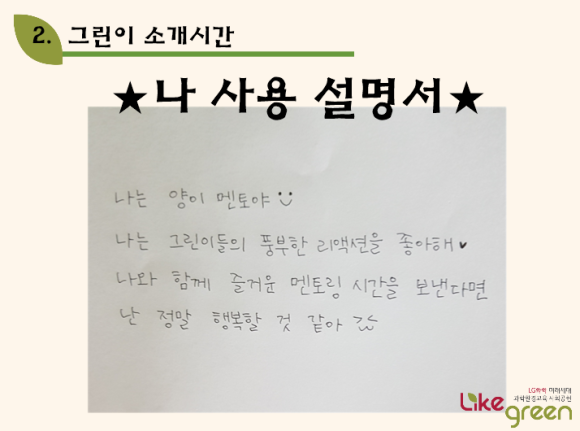 2. 그린이 소개시간
★나 사용 설명서★
나는 양이 멘토야
나는 그린이들의 풍부한 리액션을 좋아해♥
나와 함께 즐거운 멘토링 시간을 보낸다면
난 정말 행복할 것 같아 ^^
LG화학 미래세대
과학환경교육 사회공헌
Like
green